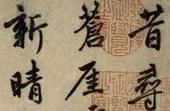 昔尋
蒼厓
新晴